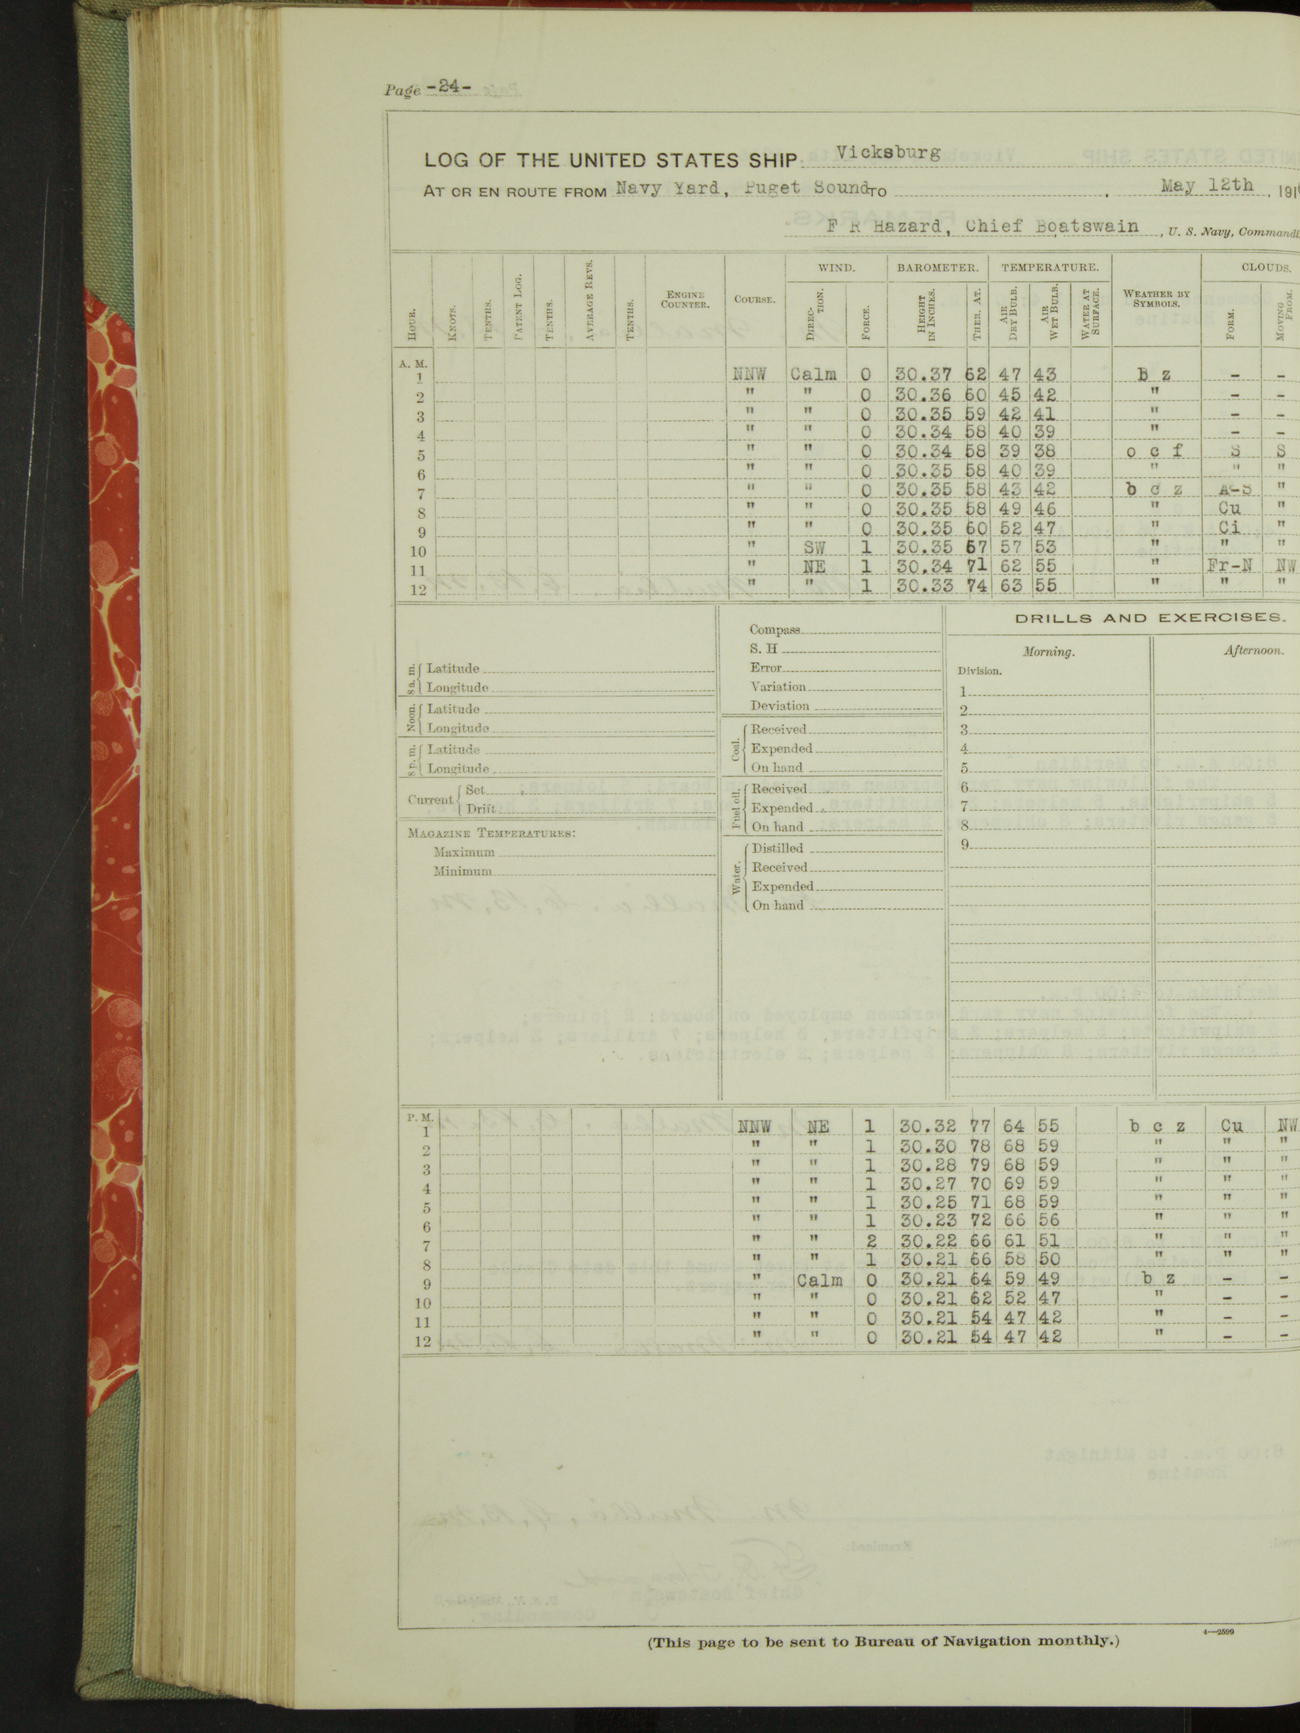 Page -24-
LOG OF THE UNITED STATES SHIP Vicksburg
AT OR EN ROUTE FROM Navy Yard, Puget Sound TO , May 12th , 191
F R Hazard, Chief Boatswain , U. S. Navy, Commandi
WIND. BAROMETER. TEMPERATURE. CLOUDS.
HOUR. KNOTS. TENTHS. PATENT LOG. TENTHS. AVERAGE REVS. TENTHS. ENGINE COUNTER. COURSE. DIRECTION. FORCE. HEIGHT IN INCHES. THER. AT. AIR DRY BULB. AIR WET BULB. WATER AT SURFACE. WEATHER BY SYMBOLS. FORM. MOVING FROM.
A. M.
1 NNW Calm 0 30.37 62 47 43 b z - -
2 " " 0 30.36 60 45 42 " - -
3 " " 0 30.35 59 42 41 " - -
4 " " 0 30.34 58 40 39 " - -
5 " " 0 30.34 58 39 38 o c f S S
6 " " 0 30.35 58 40 39 " " "
7 " " 0 30.35 58 43 42 b c z A-S "
8 " " 0 30.35 58 49 46 " Cu "
9 " " 0 30.35 60 52 47 " Ci "
10 " SW 1 30.35 67 57 53 " " "
11 " NE 1 30.34 71 62 55 " Fr-N NW
12 " " 1 30.33 74 63 55 " " "
8 a. m. Latitude
Longitude
Noon. Latitude
Longitude
8 p. m. Latitude
Longitude
Current Set
Drift
MAGAZINE TEMPERATURES:
Maximum
Minimum
Compass
S. H
Error
Variation
Deviation
Coal. Received
Expended
On hand
Fuel oil. Received
Expended
On hand
Water. Distilled
Received
Expended
On hand
DRILLS AND EXERCISES.
Morning. Afternoon.
Division.
1
2
3
4
5
6
7
8
9
P. M.
1 NNW NE 1 30.32 77 64 55 b c z Cu NW
2 " " 1 30.30 78 68 59 " " "
3 " " 1 30.28 79 68 59 " " "
4 " " 1 30.27 70 69 59 " " "
5 " " 1 30.25 71 68 59 " " "
6 " " 1 30.23 72 66 56 " " "
7 " " 2 30.22 66 61 51 " " "
8 " " 1 30.21 66 58 50 " " "
9 " Calm 0 30.21 64 59 49 b z - -
10 " " 0 30.21 62 52 47 " - -
11 " " 0 30.21 54 47 42 " - -
12 " " 0 30.21 54 47 42 " - -
(This page to be sent to Bureau of Navigation monthly.)
4—2599